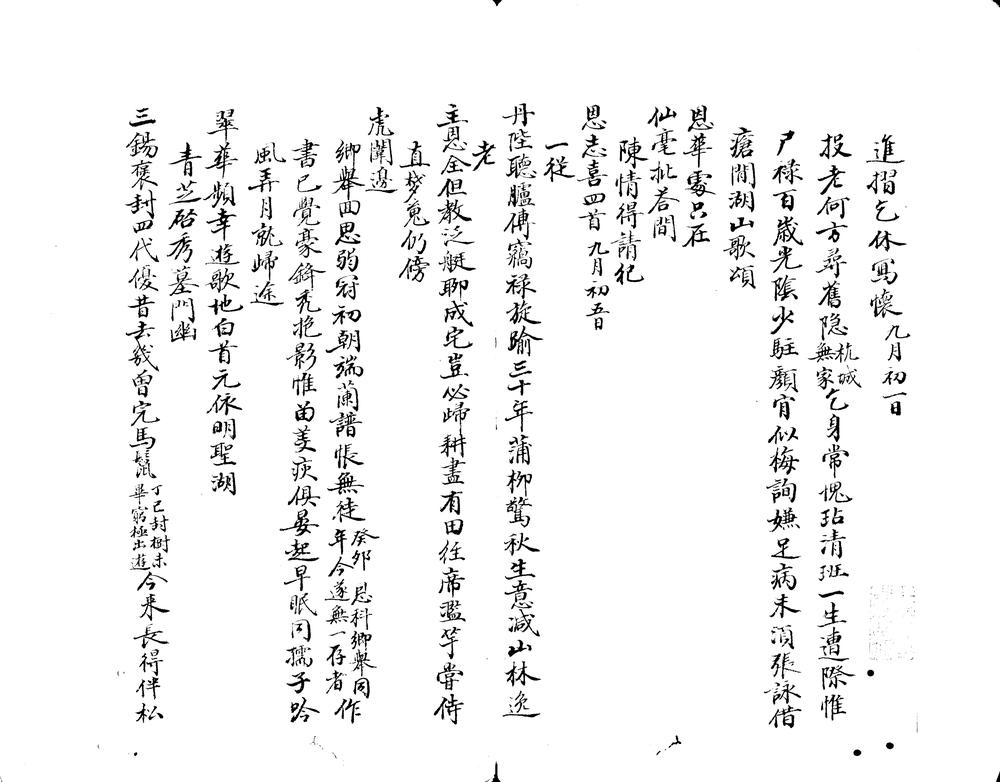 進摺乞休寫懷九月初一日
投老何方尋舊隐杭城無家乞身常愧玷清班一生遭際惟
尸禄百歲光陰少駐顏官似梅詢嫌足病未須張詠借
瘡閒湖山歌頌
恩華處只在
仙毫批荅間
陳情得請紀
恩志喜四首九月初五日
一從
丹陛聽臚傳竊禄旋踰三十年蒲柳驚秋生意减山林逸
老
主恩全但教泛艇聊成宅豈必歸耕盡有田往席濫竽曾侍
直梦魂仍傍
虎闈邊
鄉舉回思弱冠初朝端蘭譜悵無徒癸卯恩科鄉舉同年今遂無一存者作
書已覺豪鋒秃抱影惟苗美疢俱晏起早眠同孺子吟
風弄月就歸途
翠華頻幸遊歌地白首元依明聖湖
青芝啓秀墓門幽
三錫褒封四代優昔去幾曾完馬鬣丁巳封樹未畢窮極出遊今来長得伴松